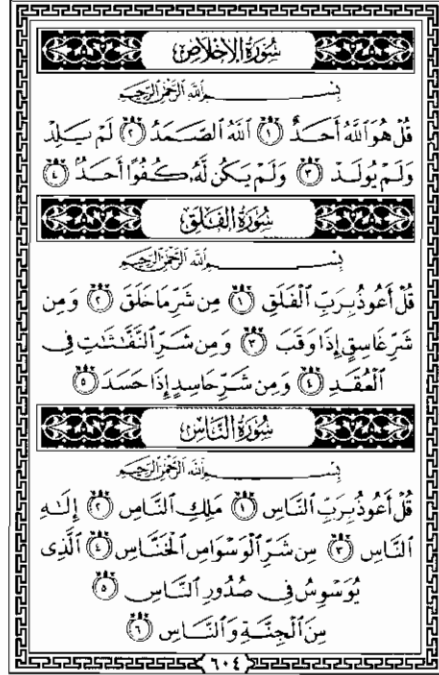 سُورَةُ الإِخْلَاصِ
بِسْمِ اللَّهِ الرَّحْمَٰنِ الرَّحِيمِ
قُلْ هُوَ ٱللَّهُ أَحَدٌ ١ ٱللَّهُ ٱلصَّمَدُ ٢ لَمْ يَلِدْ
وَلَمْ يُولَدْ ٣ وَلَمْ يَكُن لَّهُۥ كُفُوًا أَحَدٌۢ ٤
سُورَةُ الفَلَقِ
بِسْمِ اللَّهِ الرَّحْمَٰنِ الرَّحِيمِ
قُلْ أَعُوذُ بِرَبِّ ٱلْفَلَقِ ١ مِن شَرِّ مَا خَلَقَ ٢ وَمِن
شَرِّ غَاسِقٍ إِذَا وَقَبَ ٣ وَمِن شَرِّ ٱلنَّفَّٰثَٰتِ فِى
ٱلْعُقَدِ ٤ وَمِن شَرِّ حَاسِدٍ إِذَا حَسَدَ ٥
سُورَةُ النَّاسِ
بِسْمِ اللَّهِ الرَّحْمَٰنِ الرَّحِيمِ
قُلْ أَعُوذُ بِرَبِّ ٱلنَّاسِ ١ مَلِكِ ٱلنَّاسِ ٢ إِلَٰهِ
ٱلنَّاسِ ٣ مِن شَرِّ ٱلْوَسْوَاسِ ٱلْخَنَّاسِ ٤ ٱلَّذِى
يُوَسْوِسُ فِى صُدُورِ ٱلنَّاسِ ٥
مِنَ ٱلْجِنَّةِ وَٱلنَّاسِ ٦
٦٠٤